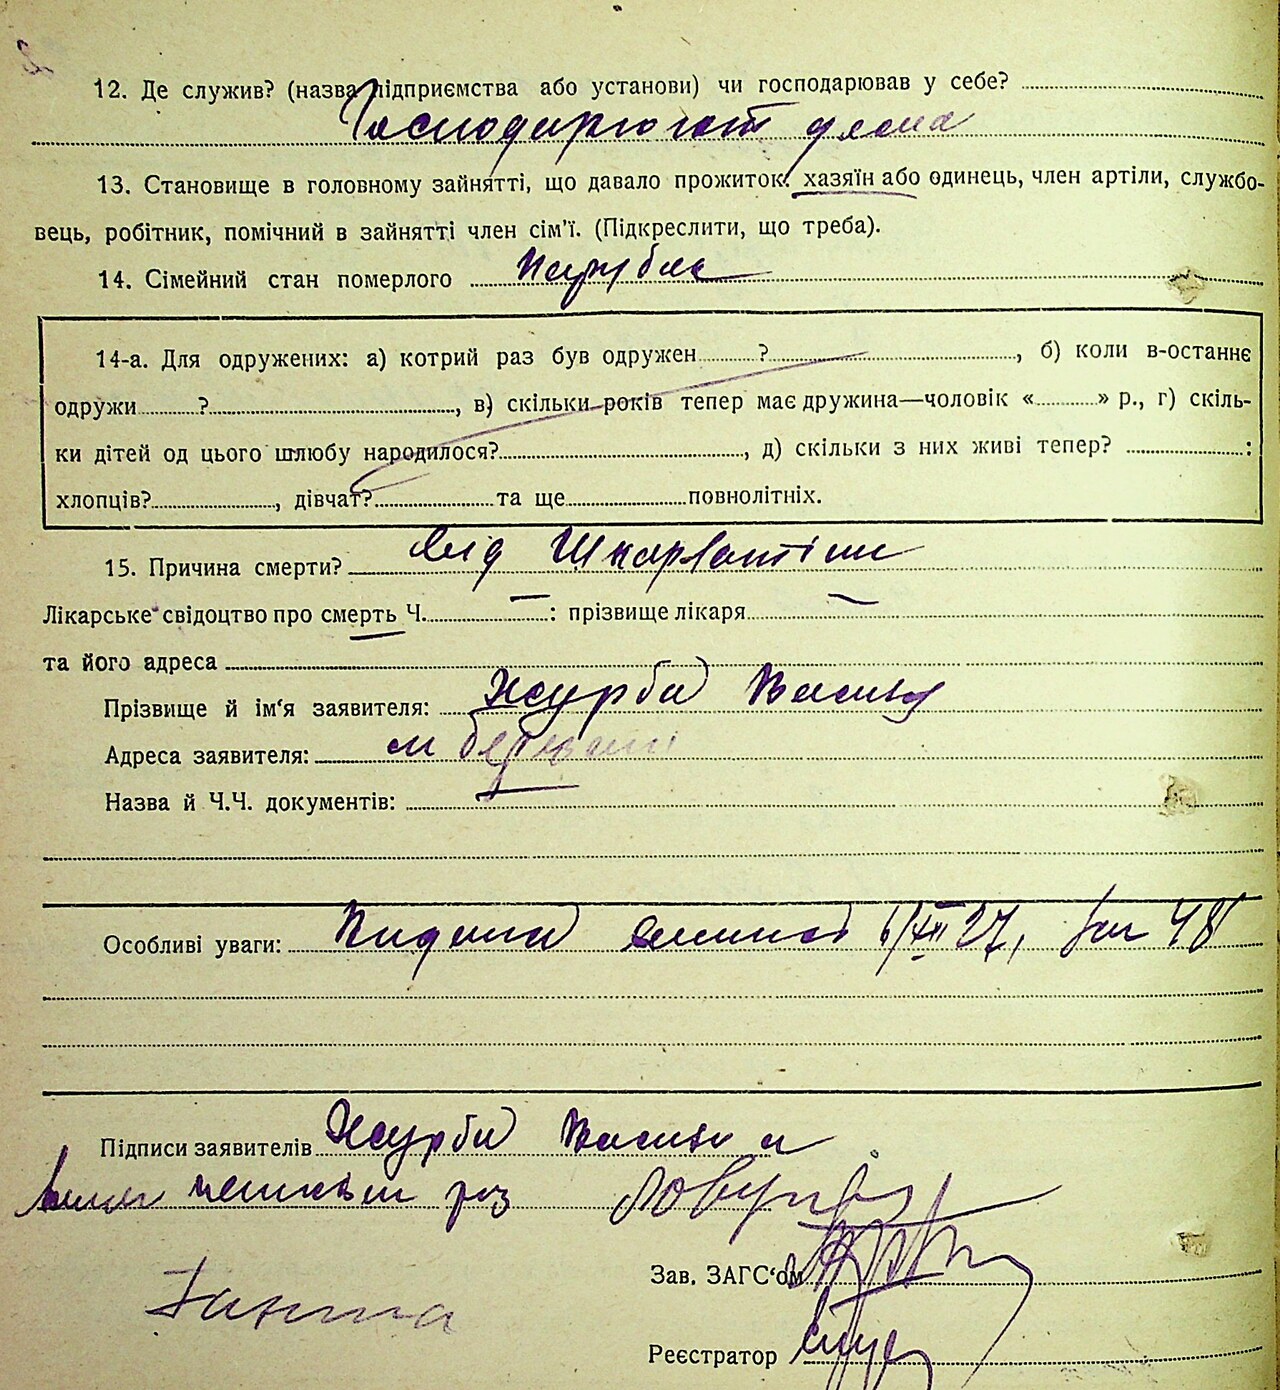 12. Де служив? (назва підприємства або установи) чи господарював у себе?
Господарювот дома
13. Становище в головному зайнятті, що давало прожиток: хазяїн або одинець, член артіли, службо-
вець, робітник, помічний в зайнятті член сім'ї. (Підкреслити, що треба).
14. Сімейний стан померлого Парубок
14-а. Для одружених: а) котрий раз був одружен ?, б) коли в-останнє
одружи ?, в) скільки років тепер має дружина—чоловік « » р., г) скіль-
ки дітей од цього шлюбу народилося?, д) скільки з них живі тепер? :
хлопців?, дівчат? та ще повнолітніх.
15. Причина смерти? Від Шкарлатіни
Лікарське свідоцтво про смерть Ч. — : прізвище лікаря —
та його адреса —
Прізвище й ім'я заявителя: Журба Василь
Адреса заявителя: м
Назва й Ч.Ч. документів: —
Особливі уваги: 6/XII 27, 48
Підписи заявителів Журба
раз
Зав. ЗАГС'ом
Реєстратор